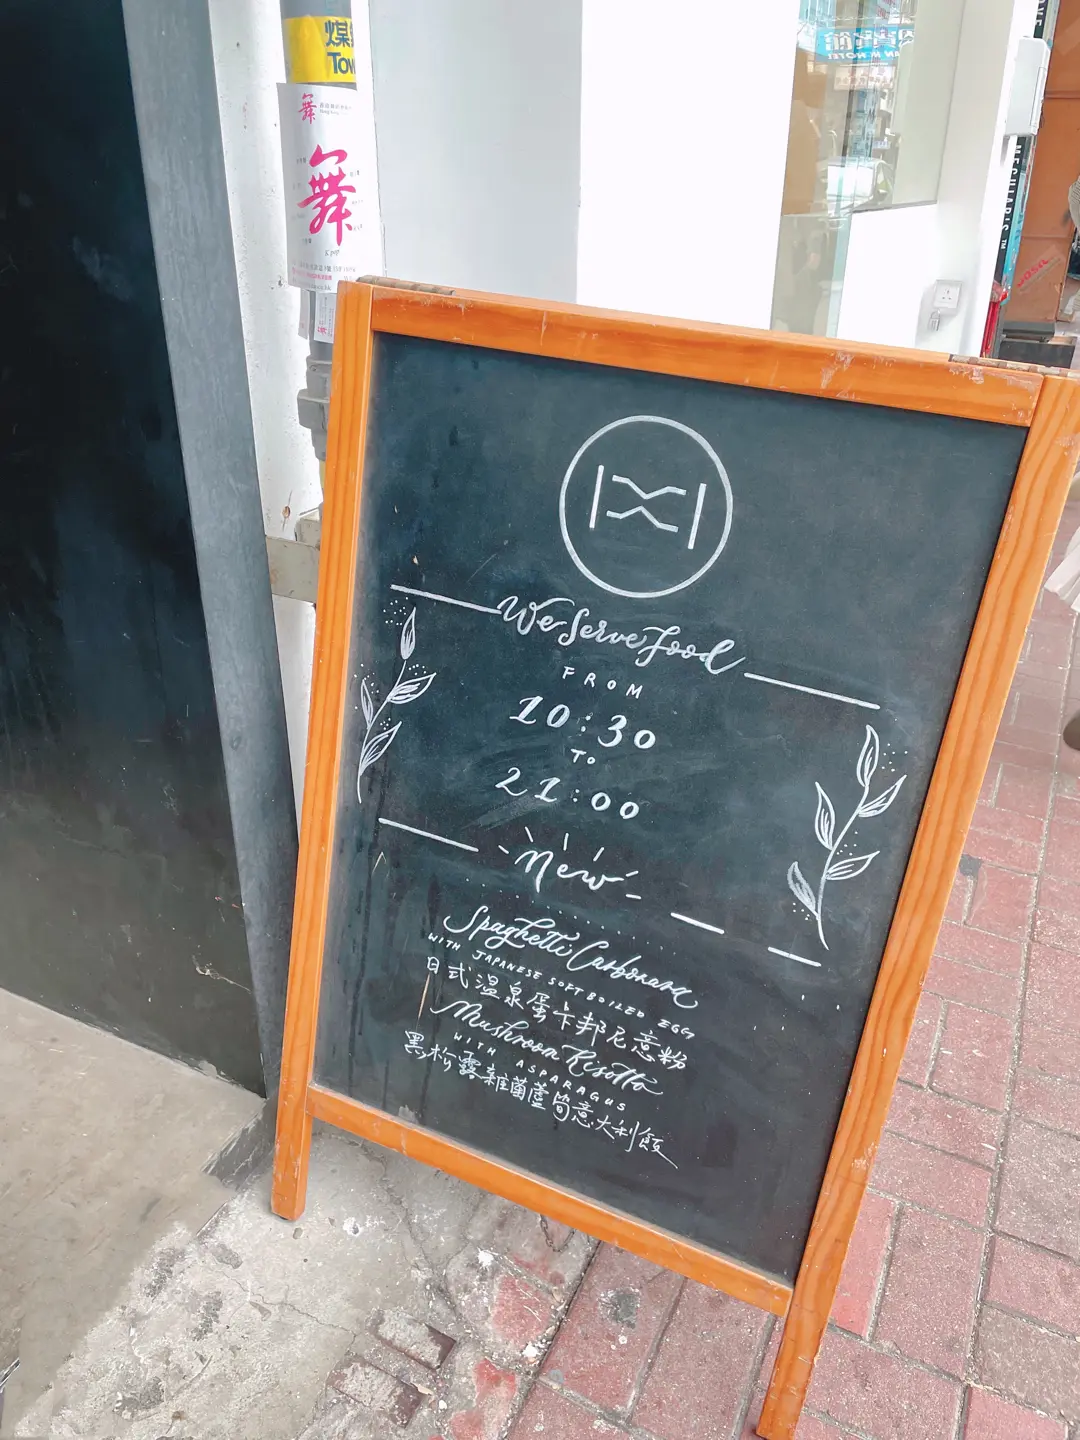 煤
Tow
舞
舞
K-pop
MEGUIAR'S™
We Serve Food
FROM
10:30
TO
21:00
New
Spaghetti Carbonara
WITH JAPANESE SOFT BOILED EGG
日式溫泉蛋卡邦尼意粉
Mushroom Risotto
WITH ASPARAGUS
黑松露雜菌蘆筍意大利飯